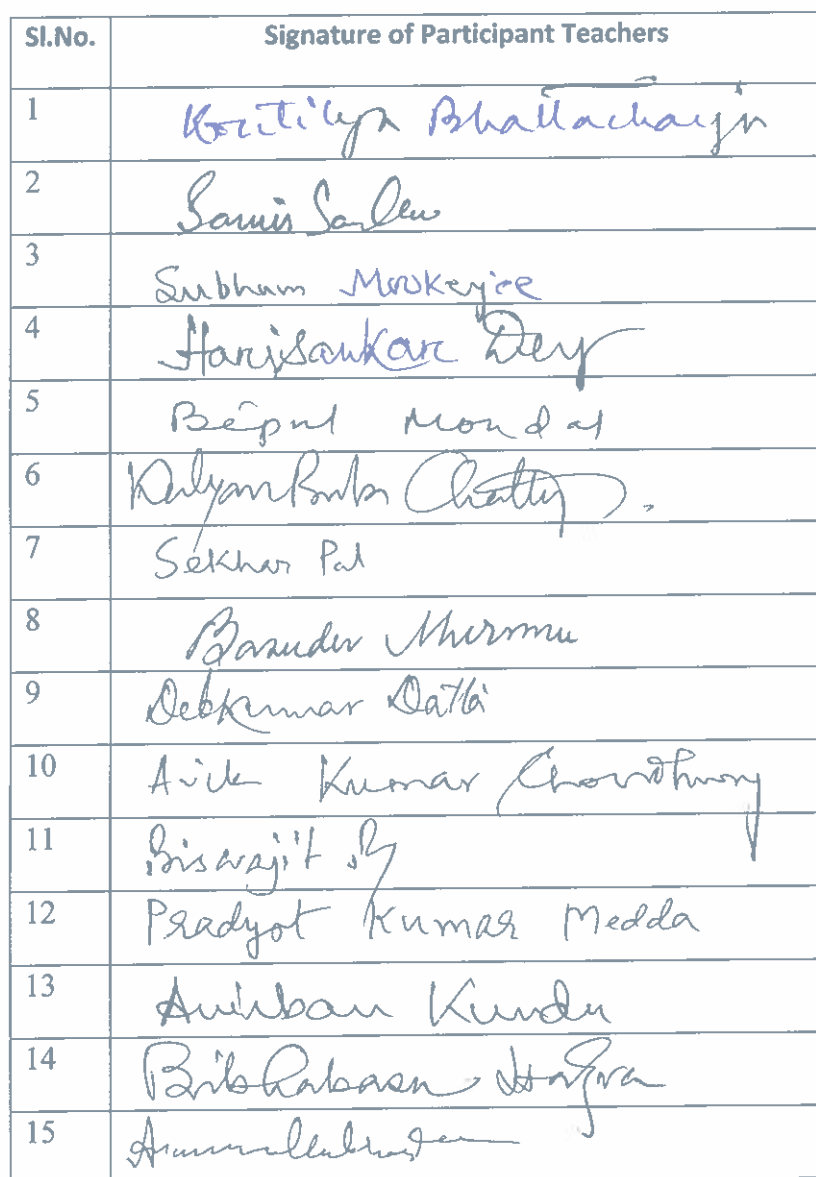 Sl.No. Signature of Participant Teachers
1 Bhattacharjya
2 Samir
3 Subham Mookerjee
4 Harisankar Dey
5 Bepul Mondal
6 Chatterj
7 Sekhar Pal
8 Basudev Murmu
9 Debkumar Datta
10 Avik Kumar Chowdhury
11 Biswajit
12 Pradyot Kumar Medda
13 Anirban Kundu
14 Bibhabasu Hazra
15